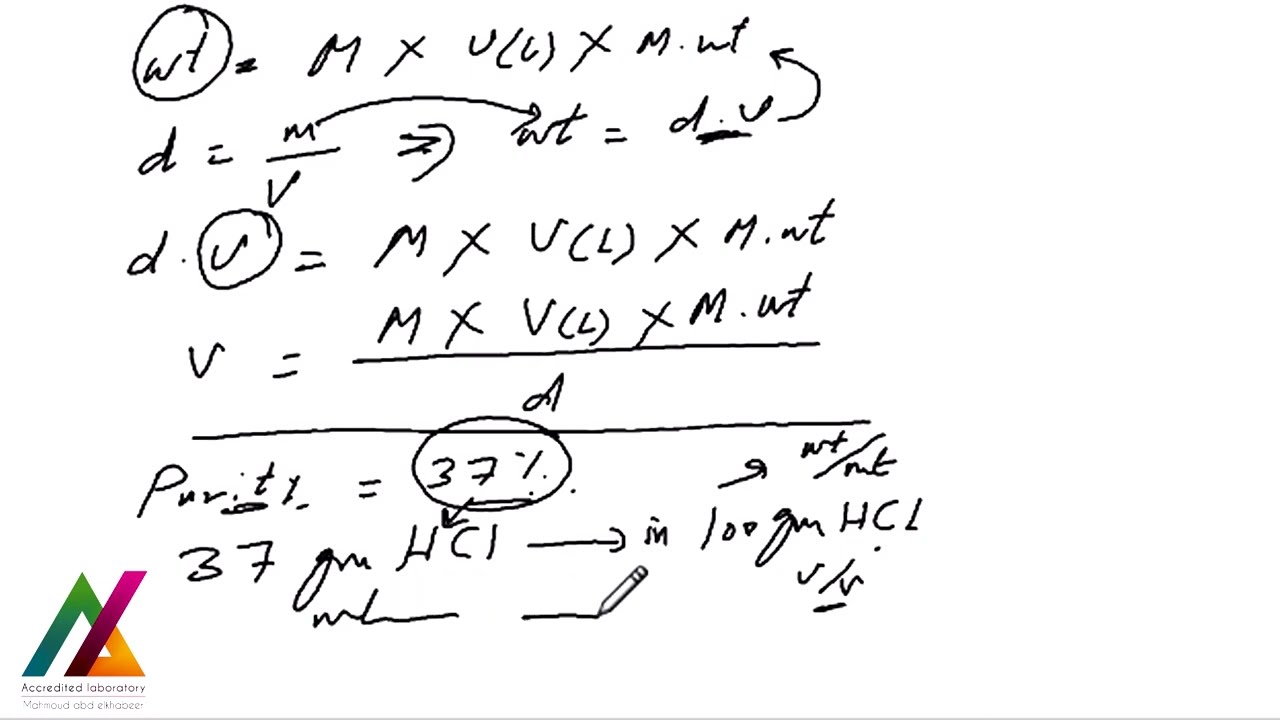 wt = M × V(L) × M.wt
d = m/V ⇒ wt = d.V
d.V = M × V(L) × M.wt
M × V(L) × M.wt
V =
d
Purity. = 37%. wt/wt
37 gm HCl → in 100 gm HCL
v/v
ml
Accredited laboratory
Mahmoud abd elkhabeer